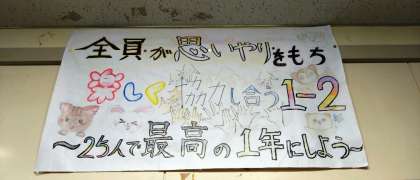 全員が思いやりをもち
楽しく協力し合う1-2
～25人で最高の1年にしよう～